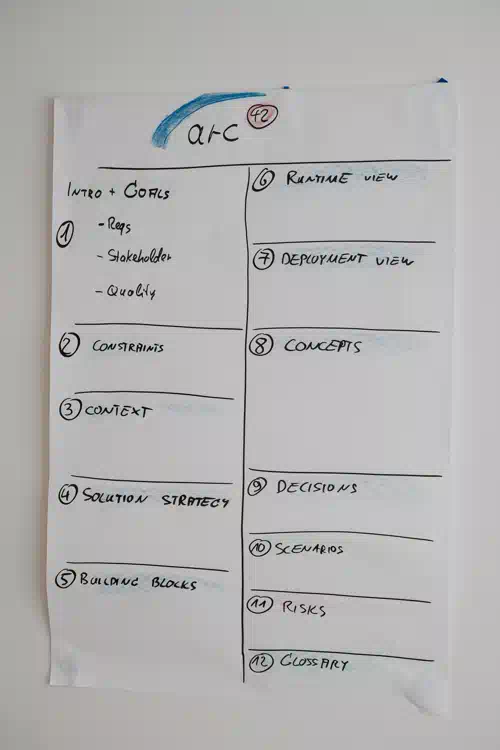 arc 42
INTRO + GOALS
1
- Reqs
- Stakeholder
- Quality
2 CONSTRAINTS
3 CONTEXT
4 SOLUTION STRATEGY
5 BUILDING BLOCKS
6 RUNTIME VIEW
7 DEPLOYMENT VIEW
8 CONCEPTS
9 DECISIONS
10 SCENARIOS
11 RISKS
12 GLOSSARY